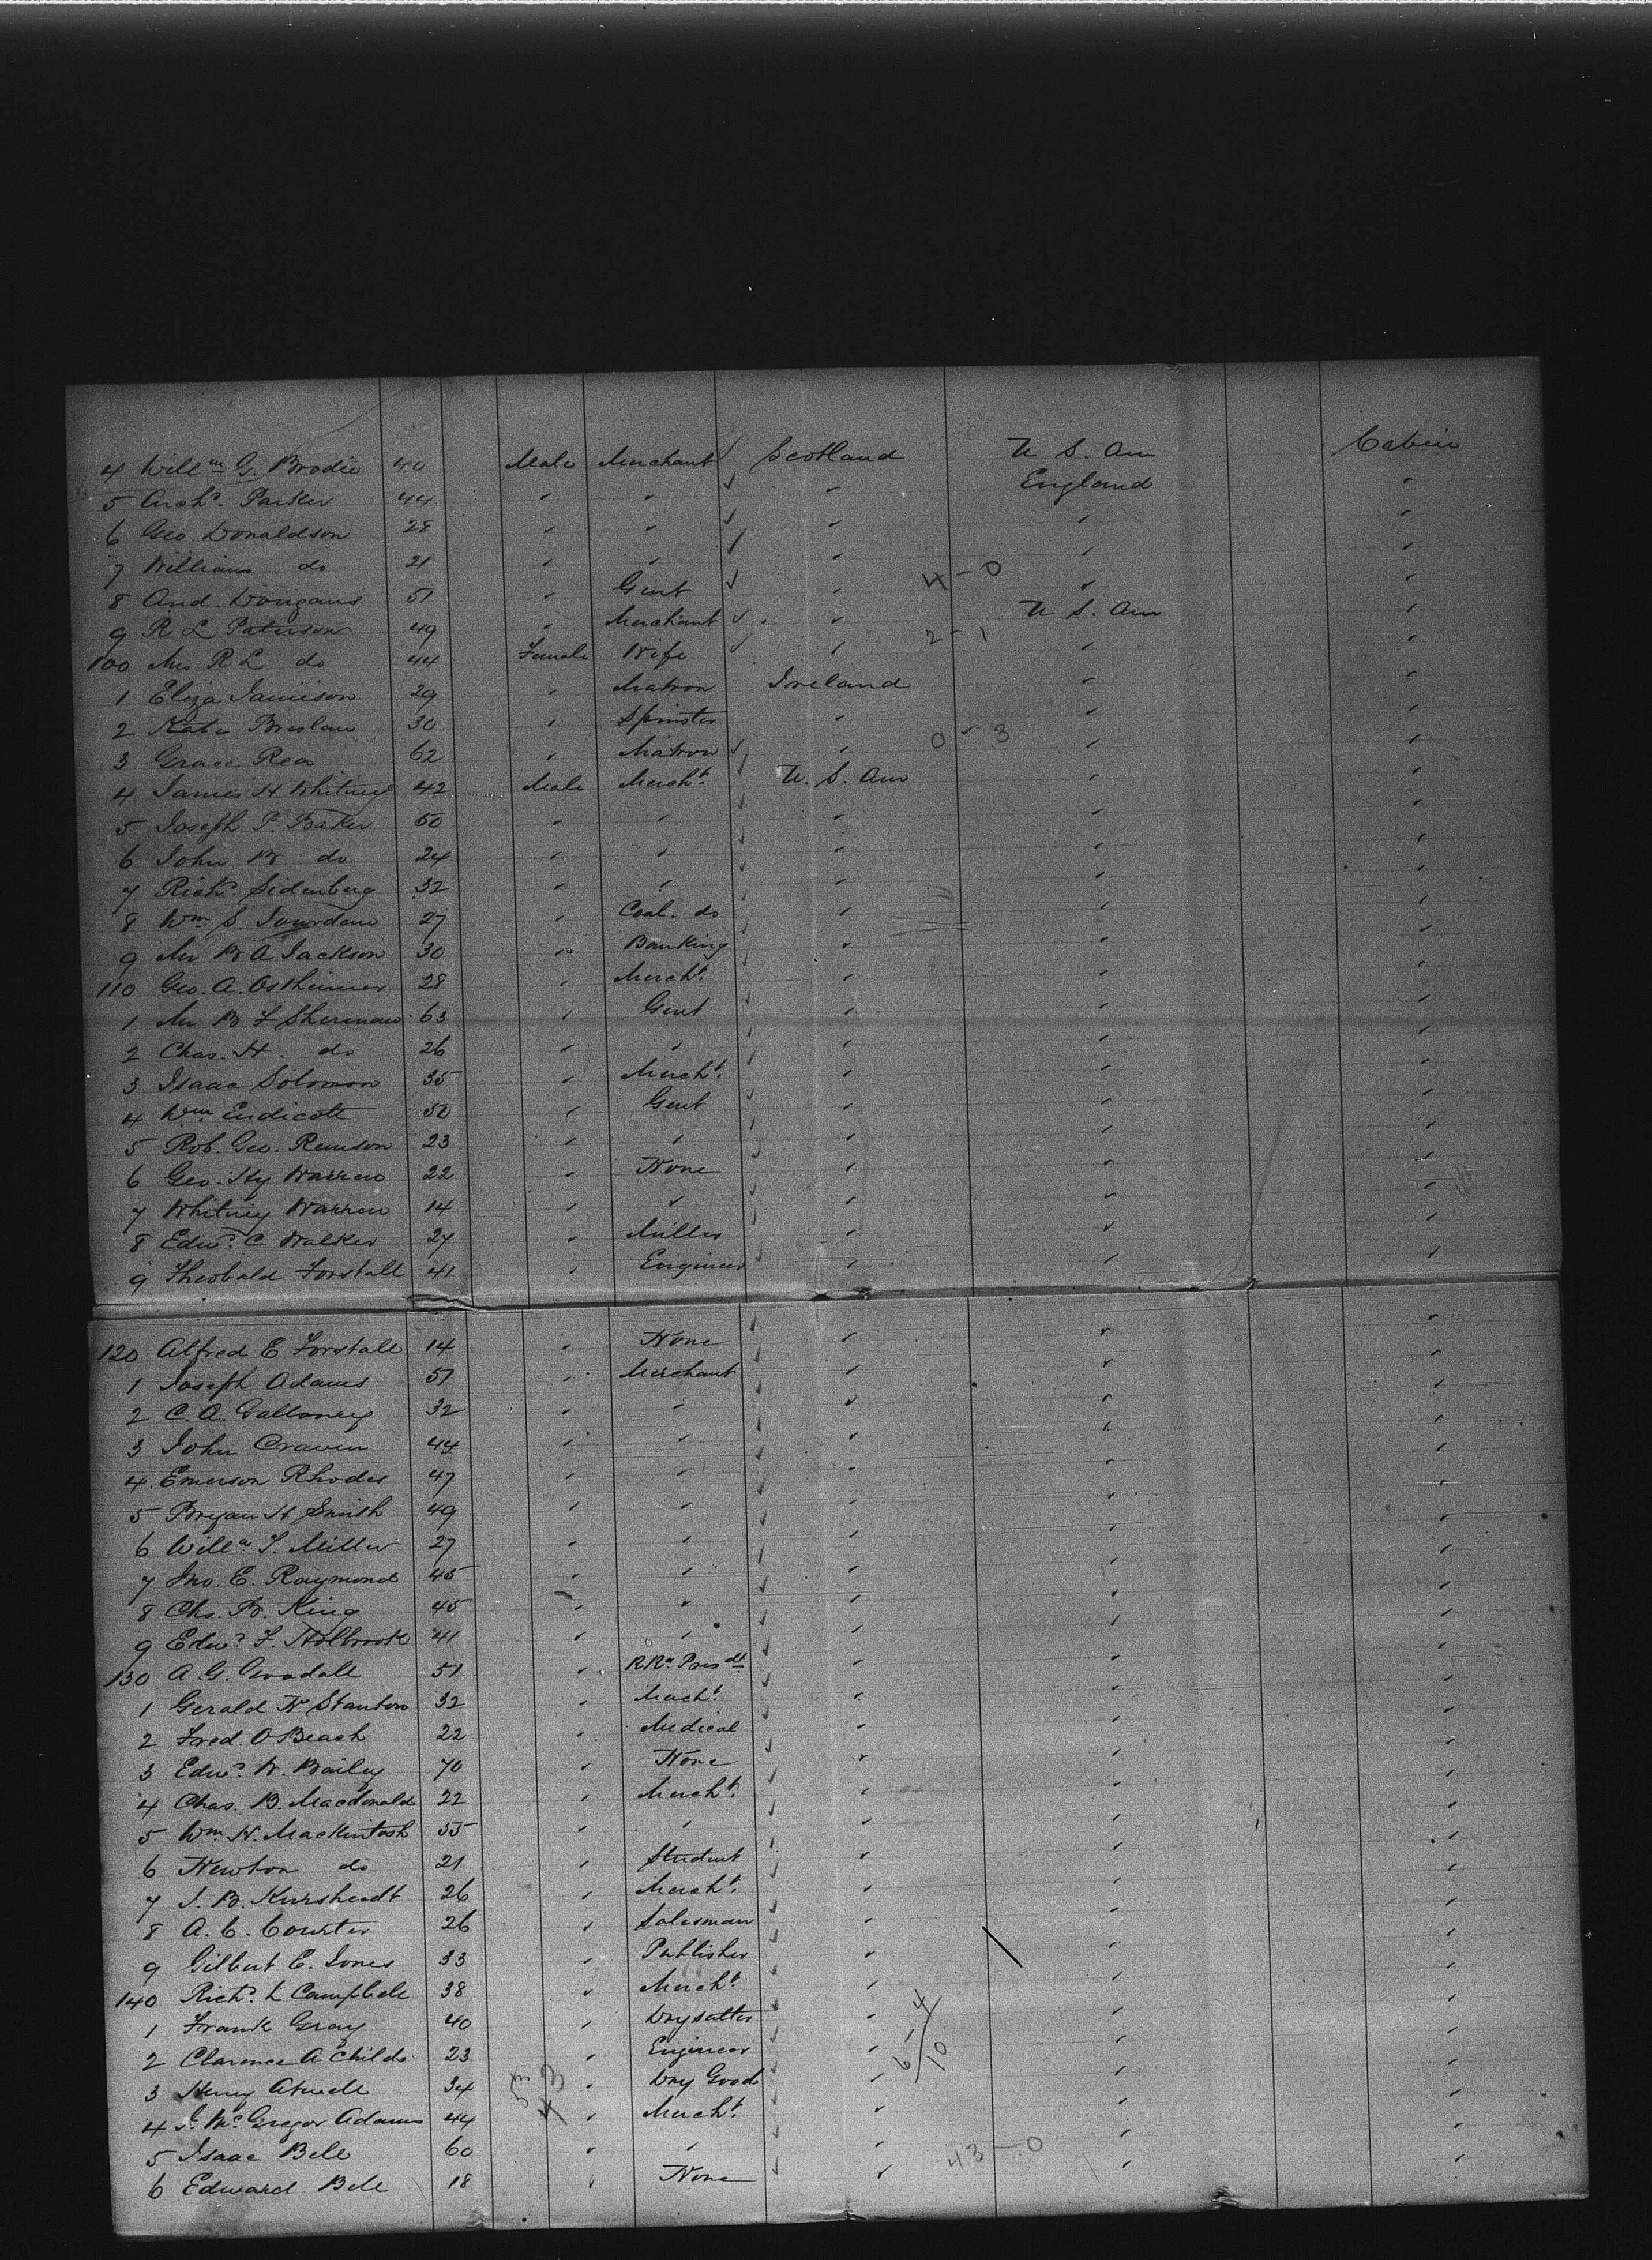 4 Will^m G. Brodie 40 Male Merchant ✓ Scotland U S. Am Cabin
5 Arch^d. Parker 44 " " ✓ " England "
6 Geo. Donaldson 28 " " ✓ " " "
7 William do 21 " " ✓ " " "
8 And. Dougans 51 " Gent ✓ " 4-0 " "
9 R L Paterson 49 " Merchant ✓ " U S. Am "
100 Mrs R L do 44 Female Wife ✓ " 2-1 " "
1 Eliza Jamieson 29 " Matron Ireland " "
2 Kate Breslau 30 " Spinster " " "
3 Grace Rea 62 " Matron ✓ " 0-3 " "
4 James H Whitney 42 Male Mercht. ✓ U. S. Am " "
5 Joseph P. Baker 50 " " ✓ " " "
6 John B do 24 " " ✓ " " "
7 Rich^d. Sidenberg 32 " " ✓ " " "
8 Wm S. Jourdan 27 " Coal. do ✓ " " "
9 Mr B A Jackson 30 " Banking ✓ " " "
110 Geo. A. Ostheimer 28 " Mercht. ✓ " " "
1 Mr B F Sherman 63 " Gent ✓ " " "
2 Chas. H. do 26 " " ✓ " " "
3 Isaac Solomon 35 " Mercht. ✓ " " "
4 Wm Endicott 50 " Gent ✓ " " "
5 Rob. Geo. Remson 23 " " ✓ " " "
6 Geo. Hy Warren 22 " None ✓ " " "
7 Whitney Warren 14 " " ✓ " " "
8 Edw^d. C Walker 27 " Miller ✓ " " "
9 Theobald Forstall 41 " Engineer ✓ " " "
120 Alfred E Forstall 14 " None ✓ " " "
1 Joseph Adams 51 " Merchant ✓ " " "
2 C. A. 32 " " ✓ " " "
3 John Craven 44 " " ✓ " " "
4 Emerson Rhodes 47 " " ✓ " " "
5 Bryan H Smith 49 " " ✓ " " "
6 Will^m T. Miller 27 " " ✓ " " "
7 Jno. E. Raymond 45 " " ✓ " " "
8 Chs. B. King 45 " " ✓ " " "
9 Edw^d F. Holbrook 41 " " ✓ " " "
130 A. G. Goodall 51 " RRd. Presdt ✓ " " "
1 Gerald N Stanton 32 " Mercht. ✓ " " "
2 Fred. O Beach 22 " Medical ✓ " " "
3 Edw^d. W. Bailey 70 " None ✓ " " "
4 Chas. B. Macdonald 22 " Mercht. ✓ " " "
5 Wm. H. Mackintosh 55 " " ✓ " " "
6 Newton do 21 " Student ✓ " " "
7 J. B. Kursheedt 26 " Mercht. ✓ " " "
8 A. C. Courter 26 " Salesman ✓ " " "
9 Gilbert E. Jones 33 " Publisher ✓ " " "
140 Rich^d. L Campbell 38 " Mercht. ✓ " " "
1 Frank Gray 40 " Drysalter ✓ " " "
2 Clarence A Childs 23 " Engineer ✓ " " "
3 Henry Atwell 34 " Dry Good ✓ " " "
4 J. McGregor Adams 44 " Mercht. ✓ " " "
5 Isaac Bell 60 " " ✓ " 43-0 " "
6 Edward Bell 18 " None ✓ " " "